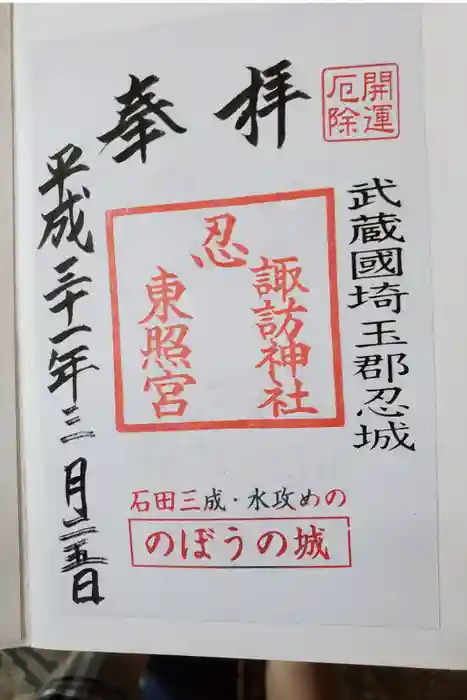 奉拝
開運
厄除
武蔵國埼玉郡忍城
忍
諏訪神社
東照宮
石田三成・水攻めの
のぼうの城
平成三十一年三月二五日